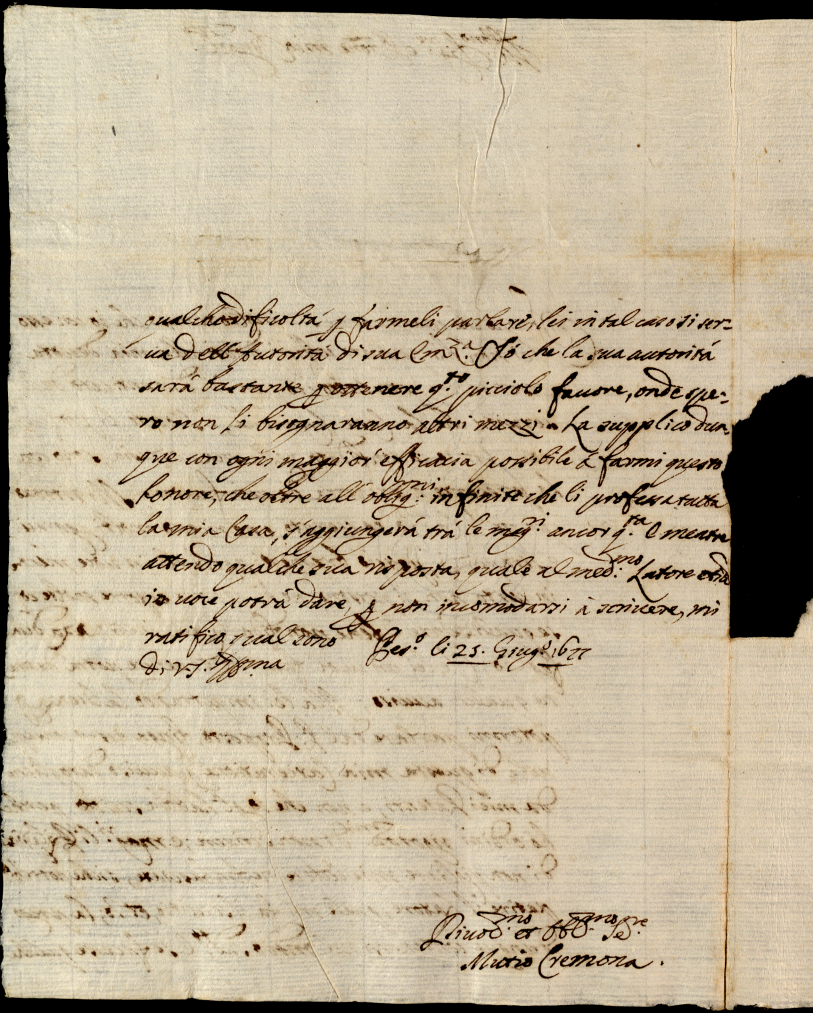 qualche dificoltá p farmeli parlare, lei in tal caso si ser-
va dell'Autoritá di sua Em.za. Só che la sua autoritá
sará bastante p ottenere q.to picciolo favore, onde spe-
ro non li bisognaranno altri mezzi. La supplico dun-
que con ogni maggior efficacia possibile á farmi questo
honore, che oltre all' oblig.ni infinite che li professa tutta
la mia Casa, s'aggiungerá trá le mag.ri ancor q.ta E mentre
attendo qualche sua risposta, quale al med.mo Latore
in voce potrá dare, p non incomodarsi à scrivere, mi
ratifico qual sono
di V.S. Ill.ma
Pes.o li 25. Giug.o 1677
Divot.mo et obbl.mo Se.re
Mutio Cremona.